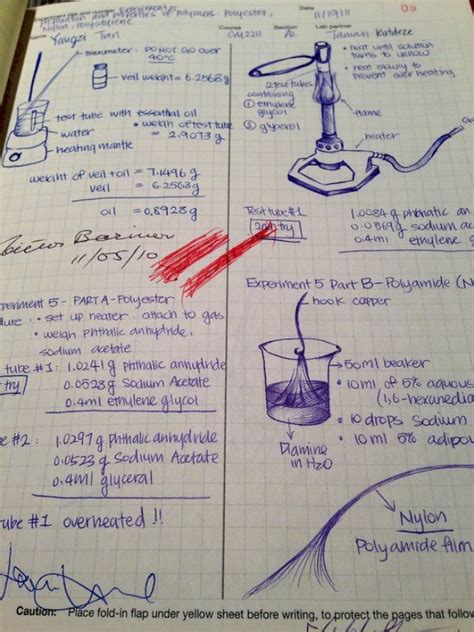 Experiments
Preparation and properties of Polymers: Polyester,
Nylon, Polystyrene
11/19/11
03
Course
Section
Lab partner
Yangzi
A2
Tamari
thermometer: DO NOT GO over
40°C
veil weight = 6.2568g
test tube with essential oil
water
• weigh of test tube
= 2.9073g
heating mantle
weight of veil + oil = 7.1496g
veil = 6.2568g
oil = 0.8928g
11/05/10
Experiment 5 - PART A - Polyester
• set up heater, attach to gas
• weigh phthalic anhydride,
sodium acetate
tube #1: 1.0241g phthalic anhydride
try
0.0528g Sodium Acetate
0.4ml ethylene glycol
#2: 1.0297g Phthalic anhydride
0.0523g Sodium Acetate
0.4ml glyceral
tube #1 overheated!!
• heat until solution
turns to yellow
• heat slowly to
prevent over heating
2 test tubes
containing
① ethylene
glycol
② glycerol
flame
heater
Test tube #1
2nd try
1.0084g phthalic an
0.0569g sodium ac
0.4ml ethylene g
Experiment 5 Part B - Polyamide (N
hook copper
50ml beaker
• 10ml of 5% aqueous
(1,6-hexanedia
• 10 drops sodium
• 10ml 5% adipo
Diamine
in H₂O
Nylon
Polyamide film
Caution: Place fold-in flap under yellow sheet before writing, to protect the pages that follow